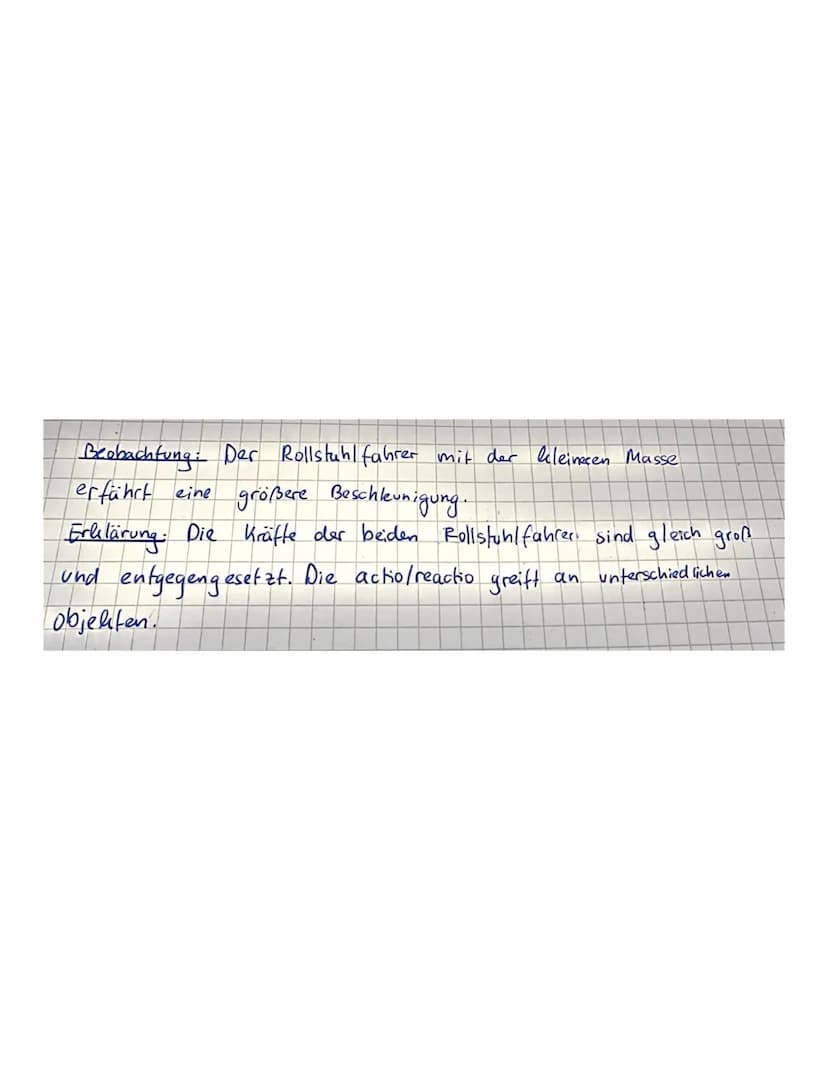 Beobachtung: Der Rollstuhlfahrer mit der kleineren Masse
erfährt eine größere Beschleunigung.
Erklärung: Die Kräfte der beiden Rollstuhlfahrer sind gleich groß
und entgegengesetzt. Die actio/reactio greift an unterschiedlichen
objekten.